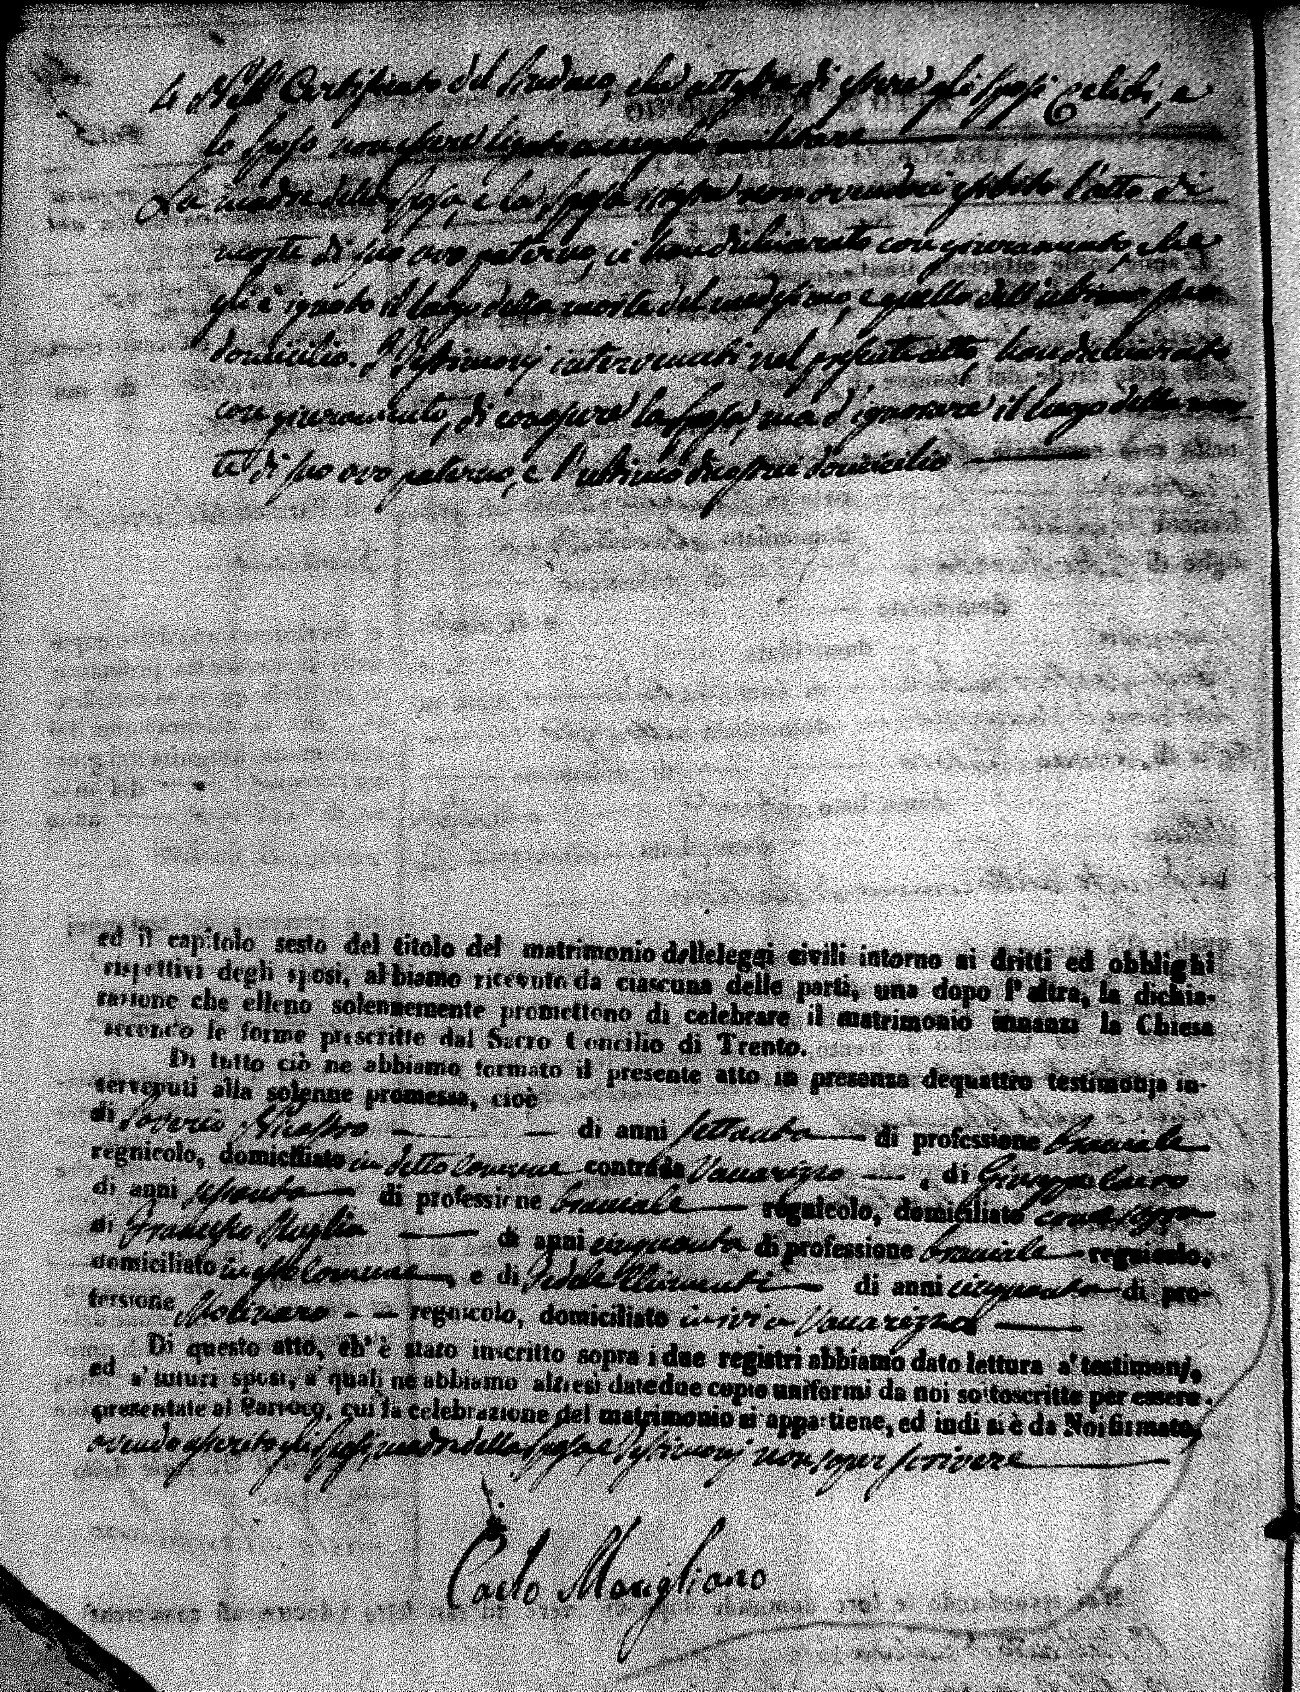 Certificato del Sindaco, che attesta di essere gli Sposi Celibi, e
lo Sposo non essere ligato a vincolo militare
La madre della Sposa, e la Sposa non avendoci esibito l'atto di
morte di suo avo paterno, ci han dichiarato con giuramento, che
gli è ignoto il luogo della morte del medesimo, e quello dell'ultimo suo
domicilio. I Testimonj intervenuti nel presente atto han dichiarato
con giuramento, di conoscere la Sposa, ma d'ignorare il luogo della mor
te di suo avo paterno, e l'ultimo domicilio
ed il capitolo sesto del titolo del matrimonio delleleggi civili intorno ai dritti ed obblighi
rispettivi degli sposi, abbiamo ricevuto da ciascuna delle parti, una dopo l'altra, la dichia-
razione che elleno solennemente promettono di celebrare il matrimonio innanzi la Chiesa
secondo le forme prescritte dal Sacro Concilio di Trento.
Di tutto ciò ne abbiamo formato il presente atto in presenza dequattro testimonj in-
tervenuti alla solenne promessa, cioè
di Saverio di anni settanta di professione bracciale
regnicolo, domiciliato in detto Comune contrada , di Giuseppe
di anni sessanta di professione bracciale regnicolo, domiciliato come sopra
di Francesco Muglia di anni cinquanta di professione bracciale regnicolo,
domiciliato in esso Comune, e di Fedele Chimenti di anni cinquanta di pro-
fessione Molinaro regnicolo, domiciliato ivi
Di questo atto, ch'è stato inscritto sopra i due registri abbiamo dato lettura a'testimonj,
ed a'futuri sposi, a'quali ne abbiamo altresì datedue copie uniformi da noi sottoscritte per essere
presentate al Parroco, cui la celebrazione del matrimonio si appartiene, ed indi si è da Noi firmato,
avendo asserito gli Sposi, madre della Sposa e Testimonj non saper scrivere
Carlo Marigliano